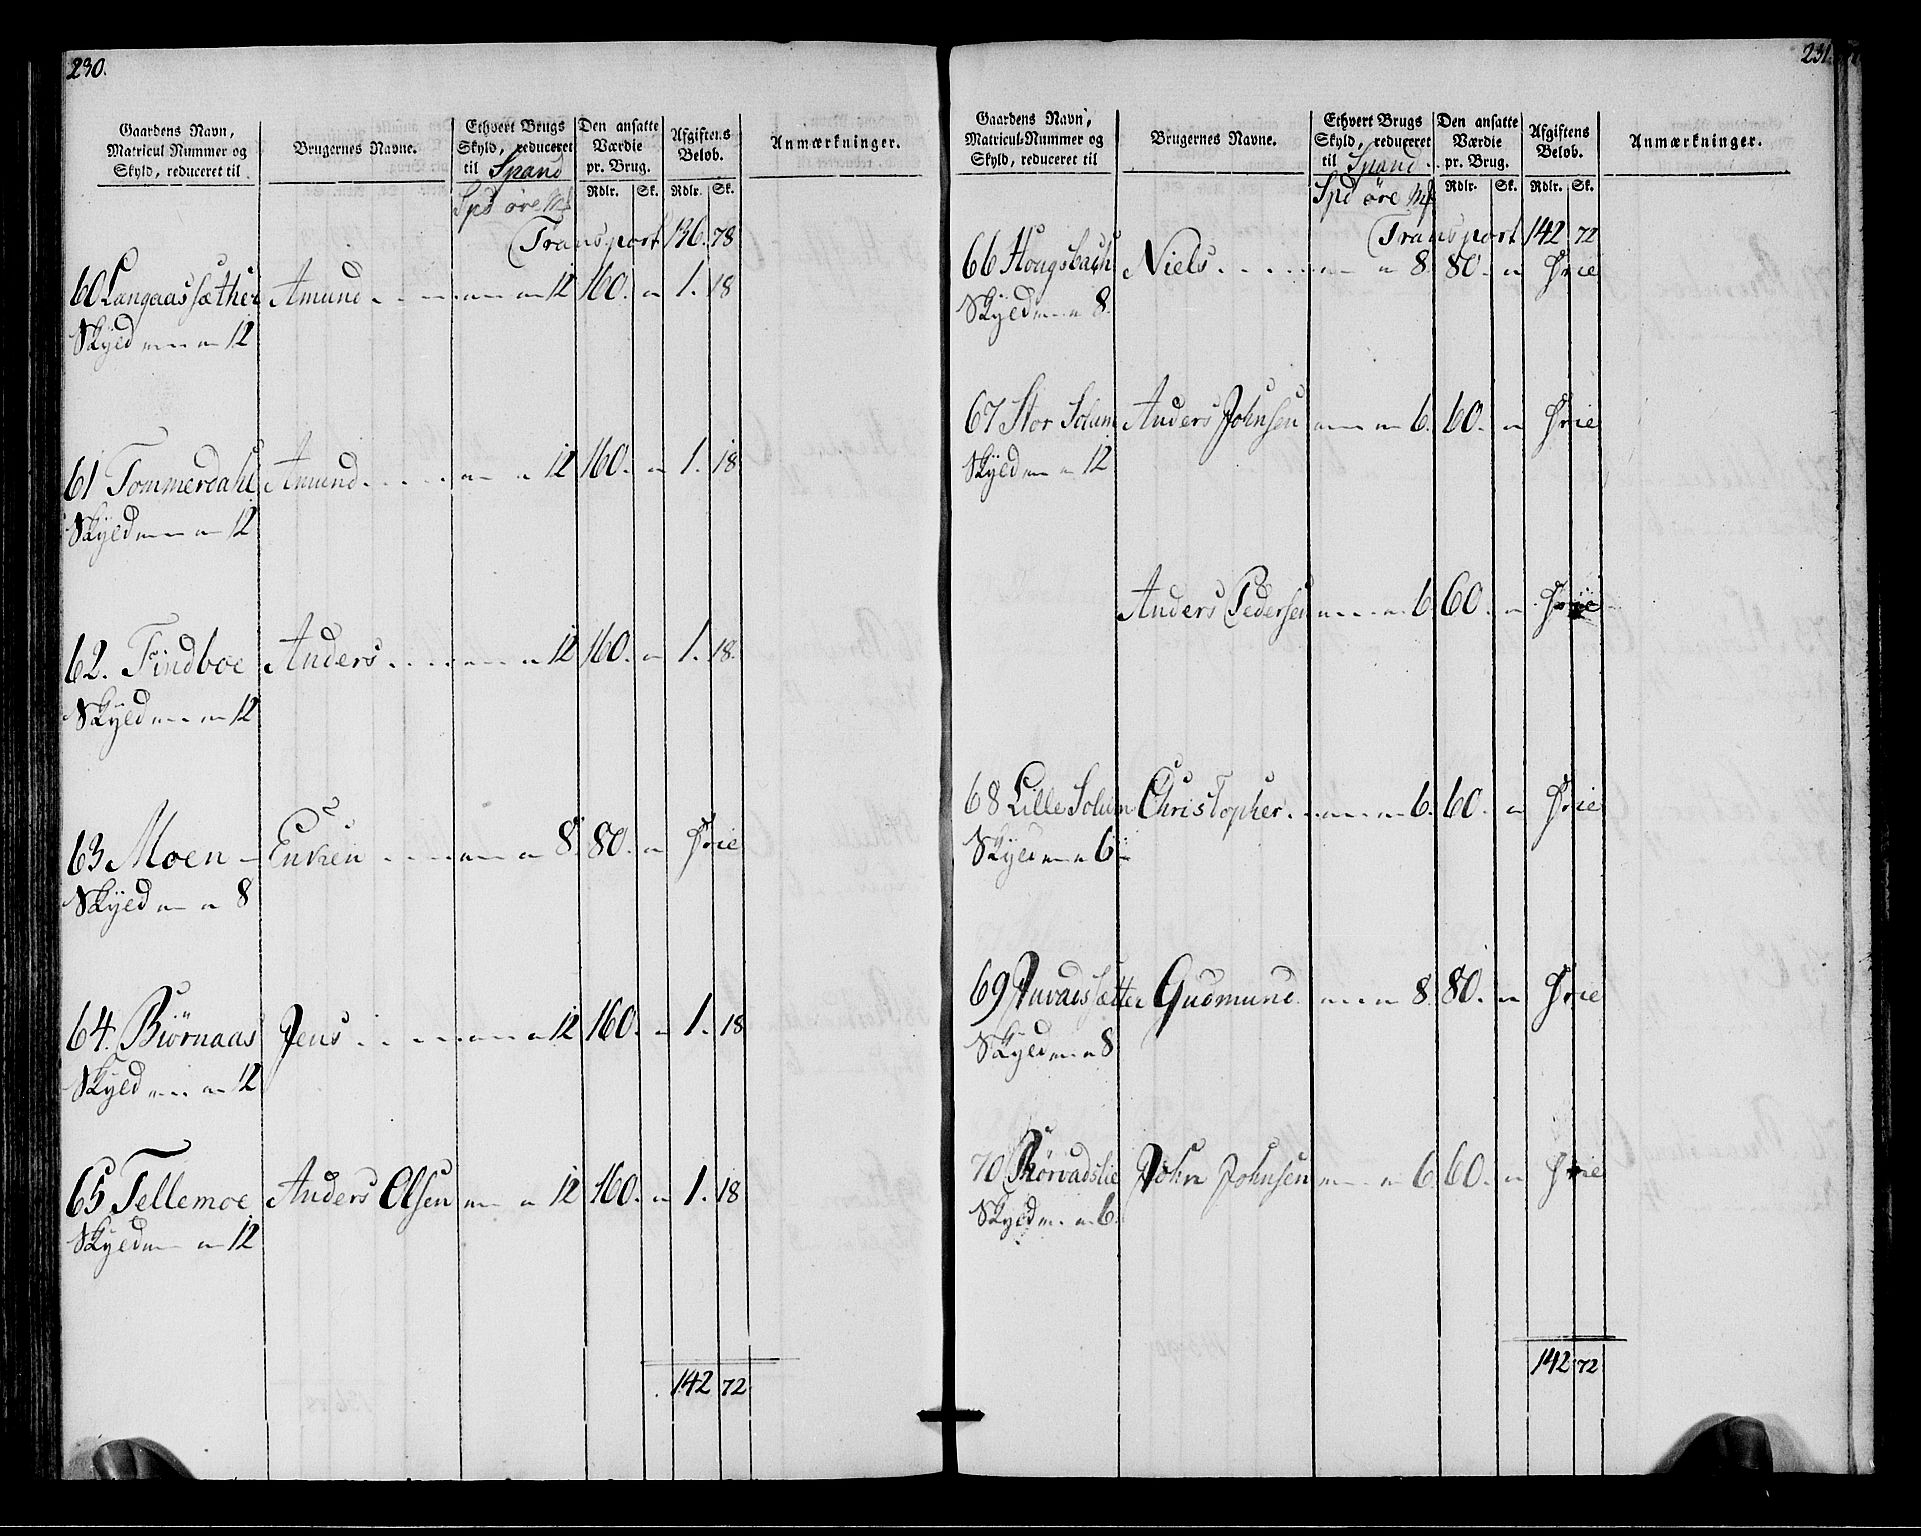 230.
Gaardens Navn, Matricul Nummer og Skyld, reduceret til
Brugernes Navne.
Ethvert Brugs Skyld, reduceret til Spand
Den ansatte Værdie pr. Brug.
Afgiftens Beløb.
Anmærkninger.
Spd øre Mk
Rdlr. Sk. Rdlr. Sk.
Transport 136. 78
60 Langaassæther Amund 12 160. 1. 18
Skyld 12
61 Tommerdahl Amund 12 160. 1. 18
Skyld 12
62. Findboe Anders 12 160. 1. 18.
Skyld 12
63 Moen Enken 8. 80. Frie
Skyld 8
64. Biørnaas Jens 12 160. 1. 18
Skyld 12
65 Tellemoe Anders Olsen 12 160. 1. 18
Skyld 12
142 72
231.
Gaardens Navn, Matricul-Nummer og Skyld, reduceret til
Brugernes Navne.
Ethvert Brugs Skyld, reduceret til Spand
Den ansatte Værdie pr. Brug.
Afgiftens Beløb.
Anmærkninger.
Spd øre Mk
Rdlr. Sk. Rdlr. Sk.
Transport 142 72
66 Hougsbach Niels 8. 80. Frie
Skyld 8.
67 Stor Solum Anders Johnsen 6. 60. Frie
Skyld 12
Anders Pedersen 6. 60. Frie
68 Lille Solum Christopher 6. 60. Frie
Skyld 6
69 Gudmund 8. 80. Frie
Skyld 8
70 Rørvadslie John Johnsen 6. 60. Frie
Skyld 6.
142 72